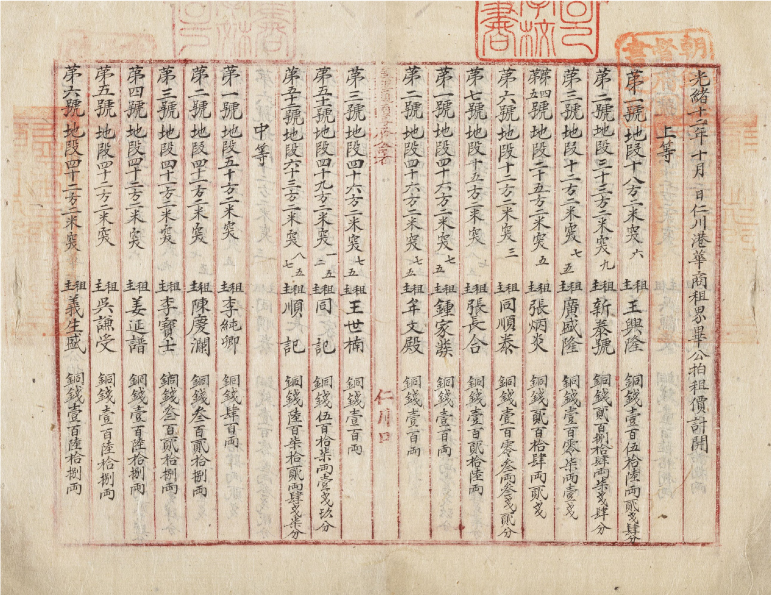 光緒十二年十月 日仁川港華商租界畢公拍租價計開
上等
第一號 地段十八方二米突六 租主 王興隆 銅錢壹百伍拾陸兩貳戔肆分
第二號 地段三十三方二米突九 租主 新泰號 銅錢貳百捌拾肆兩柒戔肆分
第三號 地段十二方二米突七五 租主 廣盛隆 銅錢壹百零柒兩壹戔
第四第五號 地段二十五方二米突五 租主 張炳炎 銅錢貳百拾肆兩貳戔
第六號 地段十二方二米突三 租主 同順泰 銅錢壹百零叁兩叁戔貳分
第七號 地段十五方二米突 租主 張長合 銅錢壹百貳拾陸兩
第一號 地段四十六方二米突七五 租主 鍾家 銅錢壹百兩
第二號 地段四十六方二米突七五 租主 牟文殿 銅錢壹百兩
第三號 地段四十六方二米突七五 租主 王世楠 銅錢壹百兩
第五十號 地段四十九方二米突一五二 租主 同記 銅錢伍百拾柒兩壹戔玖分
第五十一號 地段六十三方二米突八五七 租主 順記 銅錢陸百柒拾貳兩肆戔柒分
中等
第一號 地段五十方二米突 租主 李純卿 銅錢肆百兩
第二號 地段四十方二米突 租主 陳慶瀾 銅錢叁百貳拾兩
第三號 地段四十方二米突 租主 李寶士 銅錢叁百貳拾捌兩
第四號 地段四十二方二米突 租主 姜延譜 銅錢壹百陸拾捌兩
第五號 地段四十二方二米突 租主 吳謙受 銅錢壹百陸拾捌兩
第六號 地段四十二方二米突 租主 義生盛 銅錢壹百陸拾捌兩